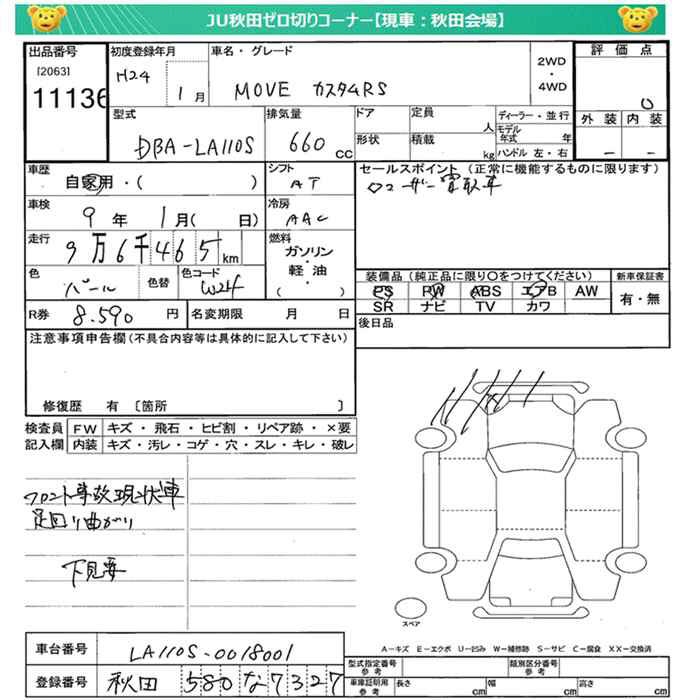 JU秋田ゼロ切りコーナー【現車：秋田会場】
出品番号
[2063]
11136
初度登録年月
H24
1月
車名・グレード
MOVE カスタムRS
2WD
・
4WD
評価点
0
外装 内装
－ －
型式
DBA-LA110S
排気量
660 cc
ドア
形状
定員
人
積載
kg
ディーラー・並行
モデル年式 年
ハンドル 左・右
車歴
自家用・( )
シフト
AT
セールスポイント (正常に機能するものに限ります)
ワンオーナー買取車
車検
9年 1月( 日)
冷房
AAC
走行
9万6千465km
燃料
ガソリン
・
軽油
( )
色
パール
色替
色コード
W24
装備品 (純正品に限り〇をつけてください)
新車保証書
PS PW ABS エアB AW
有・無
SR ナビ TV カワ
R券
8.590円
名変期限 月 日
後日品
注意事項申告欄(不具合内容等は具体的に記入して下さい)
修復歴 有 〔箇所 〕
検査員 FW キズ・飛石・ヒビ割・リペア跡・×要
記入欄 内装 キズ・汚レ・コゲ・穴・スレ・キレ・破レ
フロント事故現状車
足回り曲がり
下見要
スペア
A－キズ E－エクボ U－凹み W－補修跡 S－サビ C－腐食 XX－交換済
車台番号
LA110S-0018001
登録番号
秋田 580 な 7327
型式指定番号
参考
類別区分番号
参考
車庫証明用
参考
長さ cm
幅 cm
高さ cm